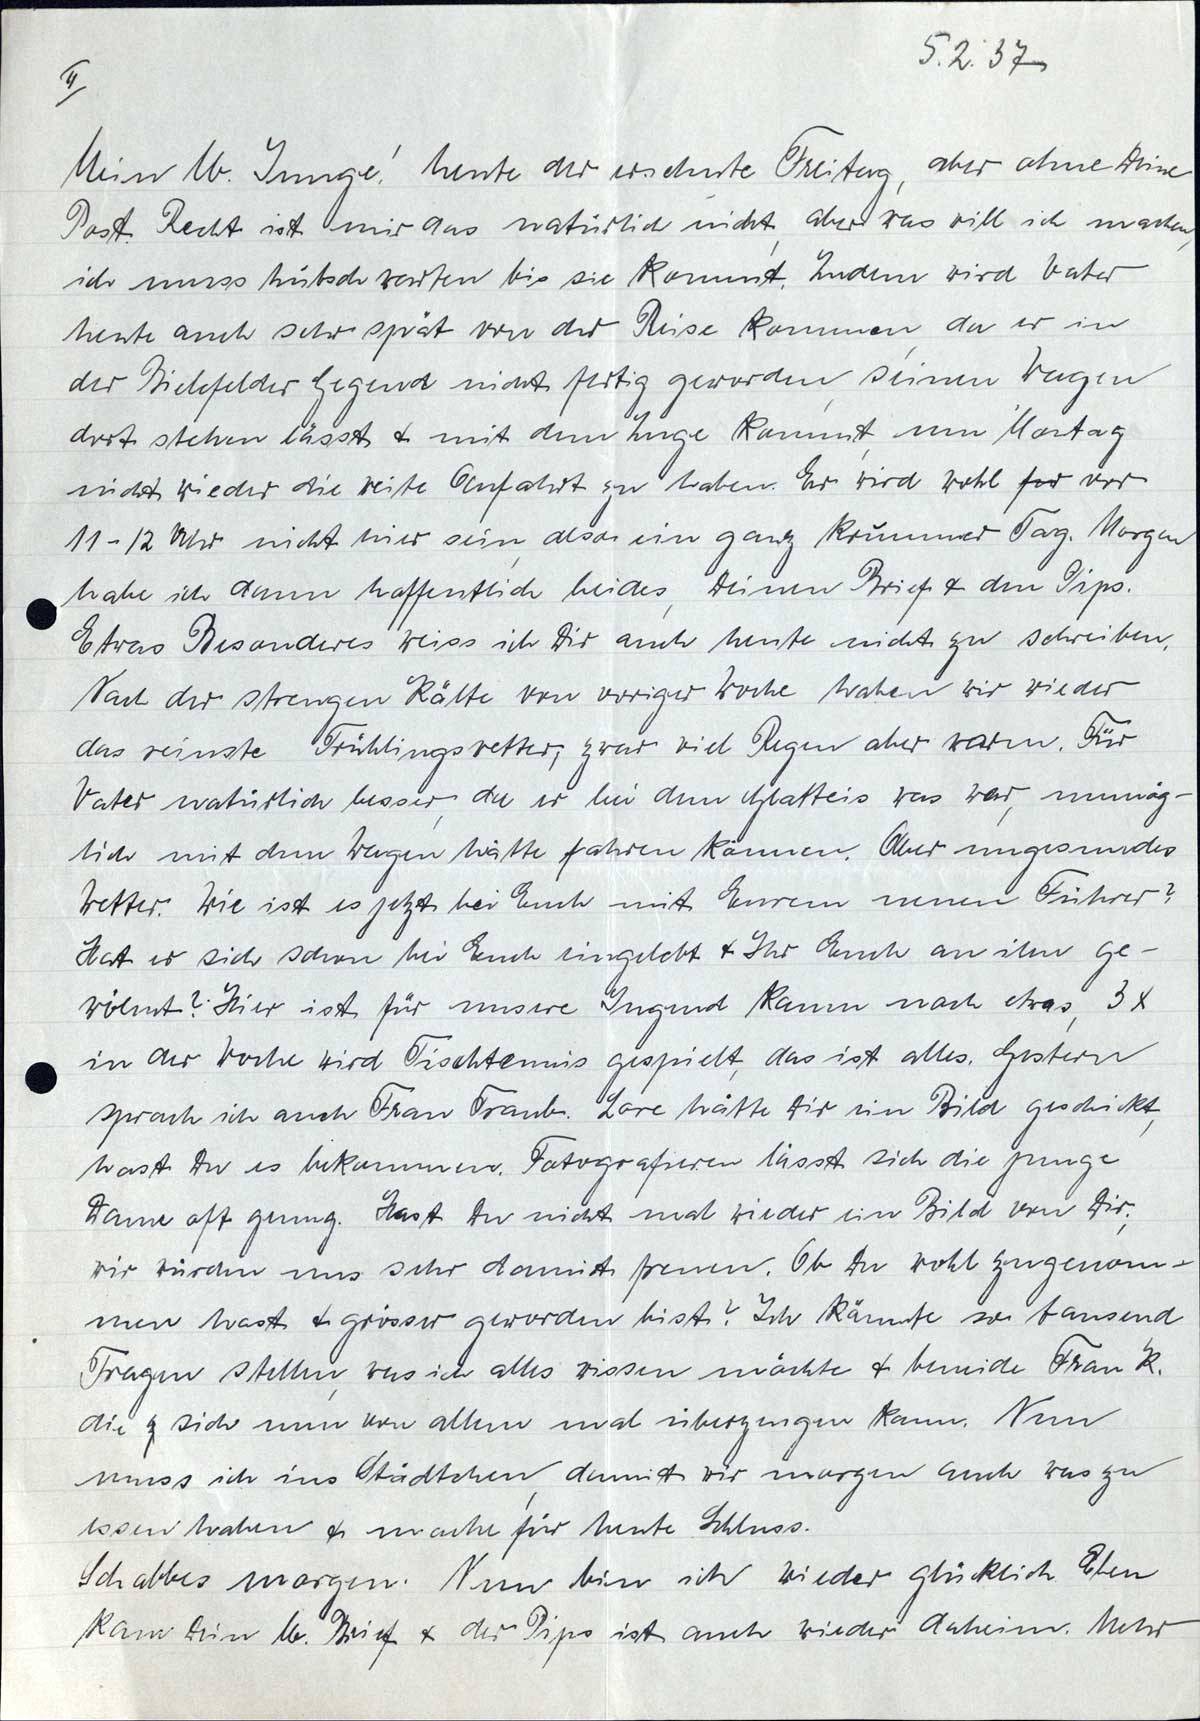 5.2.37
II
Mein lb. Junge! heute der ersehnte Freitag, aber ohne Deine
Post. Recht ist mir das natürlich nicht, aber was will ich machen,
ich muss hübsch warten bis sie kommt. Zudem wird Vater
heute auch sehr spät von der Reise kommen, da er in
der Bielefelder Gegend nicht fertig geworden, seinen Wagen
dort stehen lässt & mit dem Zuge kommt, um Montag
nicht wieder die weite Anfahrt zu haben. Er wird wohl vor
11-12 Uhr nicht hier sein, also ein ganz krummer Tag. Morgen
habe ich dann hoffentlich beides, Deinen Brief & den Pips.
Etwas Besonderes weiss ich Dir auch heute nicht zu schreiben.
Nach der strengen Kälte von voriger Woche haben wir wieder
das reinste Frühlingswetter, zwar viel Regen aber warm. Für
Vater natürlich besser, da er bei dem Glatteis was war, unmög-
lich mit dem Wagen hätte fahren können. Aber ungesundes
Wetter. Wie ist es jetzt bei Euch mit Eurem neuen Führer?
Hat er sich schon bei Euch eingelebt & Ihr Euch an ihn ge-
wöhnt? Hier ist für unsere Jugend kaum noch etwas, 3 x
in der Woche wird Tischtennis gespielt, das ist alles. Gestern
sprach ich auch Frau Traub. Lore hätte Dir ein Bild geschickt,
hast Du es bekommen. Fotografieren lässt sich die junge
Dame oft genug. Hast Du nicht mal wieder ein Bild von Dir,
wir würden uns sehr damit freuen. Ob Du wohl zugenom-
men hast & grösser geworden bist? Ich könnte so tausend
Fragen stellen, was ich alles wissen möchte & beneide Frau K.
die sich nun von allem mal überzeugen kann. Nun
muss ich ins Städtchen, damit wir morgen auch was zu
essen haben & mache für heute Schluss.
Schabbes morgen. Nun bin ich wieder glücklich. Eben
kam Dein lb. Brief & der Pips ist auch wieder daheim. Mehr